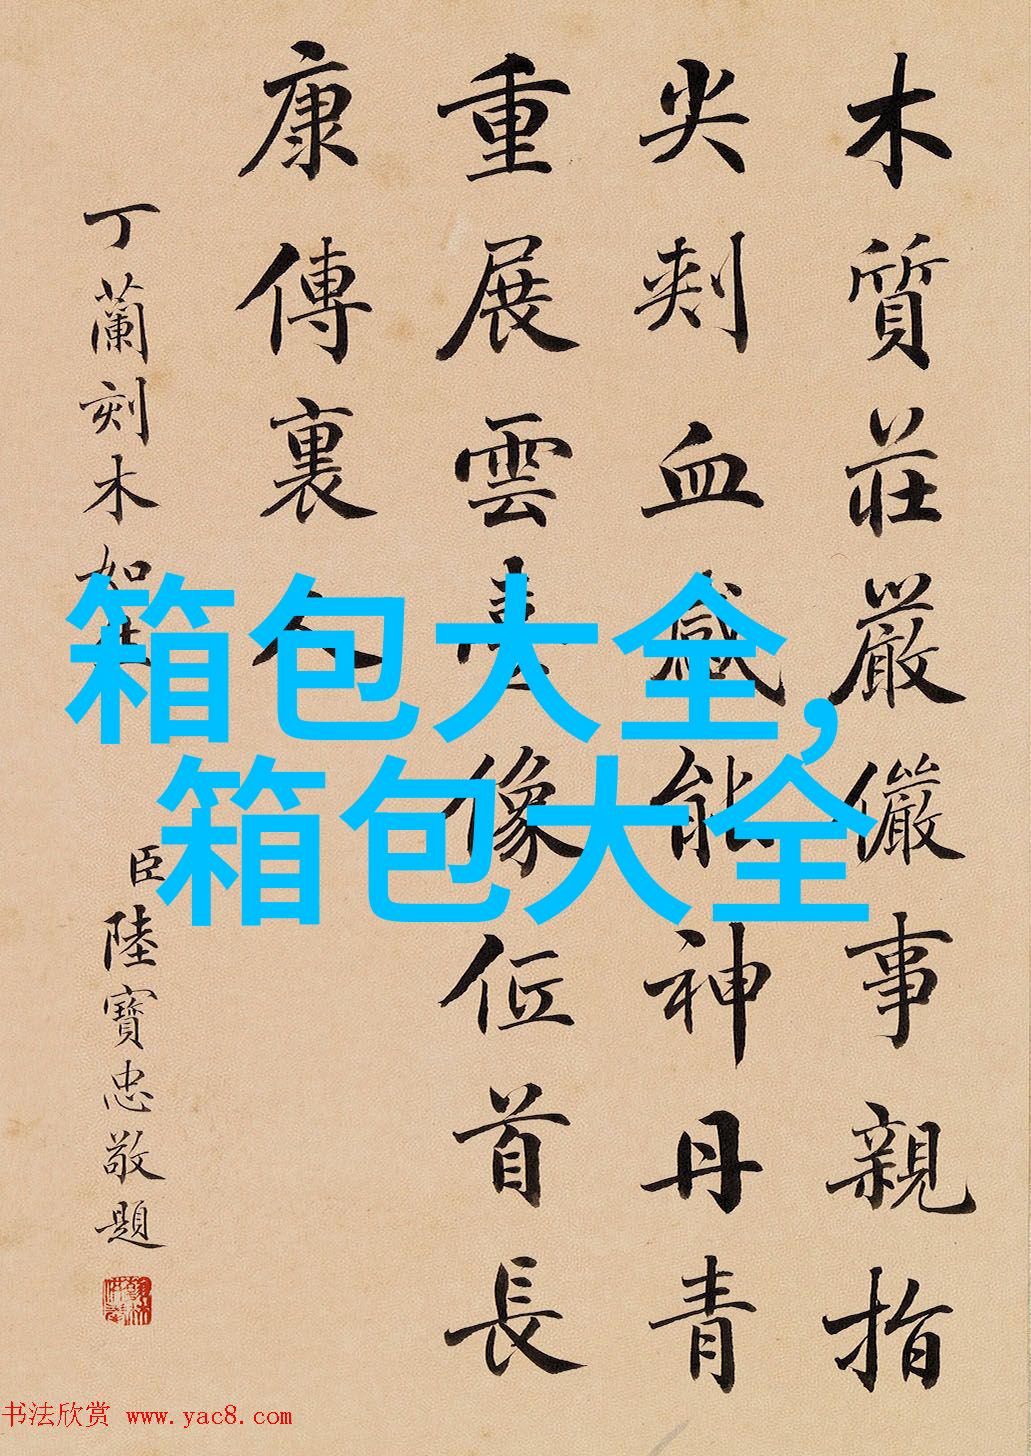 木質莊嚴儼事親指
尖刾血感能神丹青
重展雲臺像位首長
康傳裏人
丁蘭刻木如
臣陸寶忠敬題
箱包大全,
箱包大全
书法欣赏 www.yac8.com